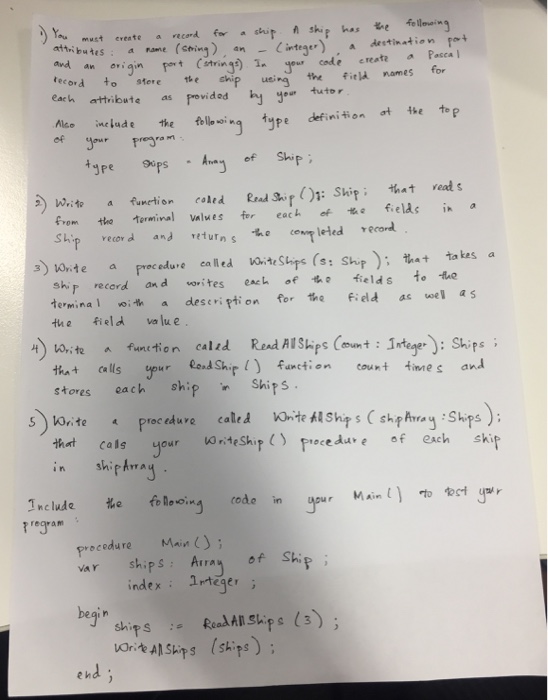 1) You must create a record for a ship. A ship has the following
attributes: a name (string), an - (integer), a destination port
and an origin port (strings) In your code create a Pascal
record to store the ship using the field names for
each attribute as provided by your tutor.
Also include the following type definition at the top
of your program.
type Ships = Array of Ship;
2) Write a function called ReadShip(): Ship; that reads
from the terminal values for each of the fields in a
Ship record and returns the completed record.
3) Write a procedure called WriteShips (s: Ship); that takes a
ship record and writes each of the fields to the
terminal with a description for the field as well as
the field value.
4) Write a function called ReadAllShips (count: Integer): Ships;
that calls your ReadShip() function count times and
stores each ship in Ships.
5) Write a procedure called WriteAllShips (shipArray: Ships);
that calls your WriteShip() procedure of each ship
in shipArray.
Include the following code in your Main() to test your
program:
procedure Main();
var ships: Array of Ship;
index: Integer;
begin
ships := ReadAllShips (3);
WriteAllShips (ships);
end;